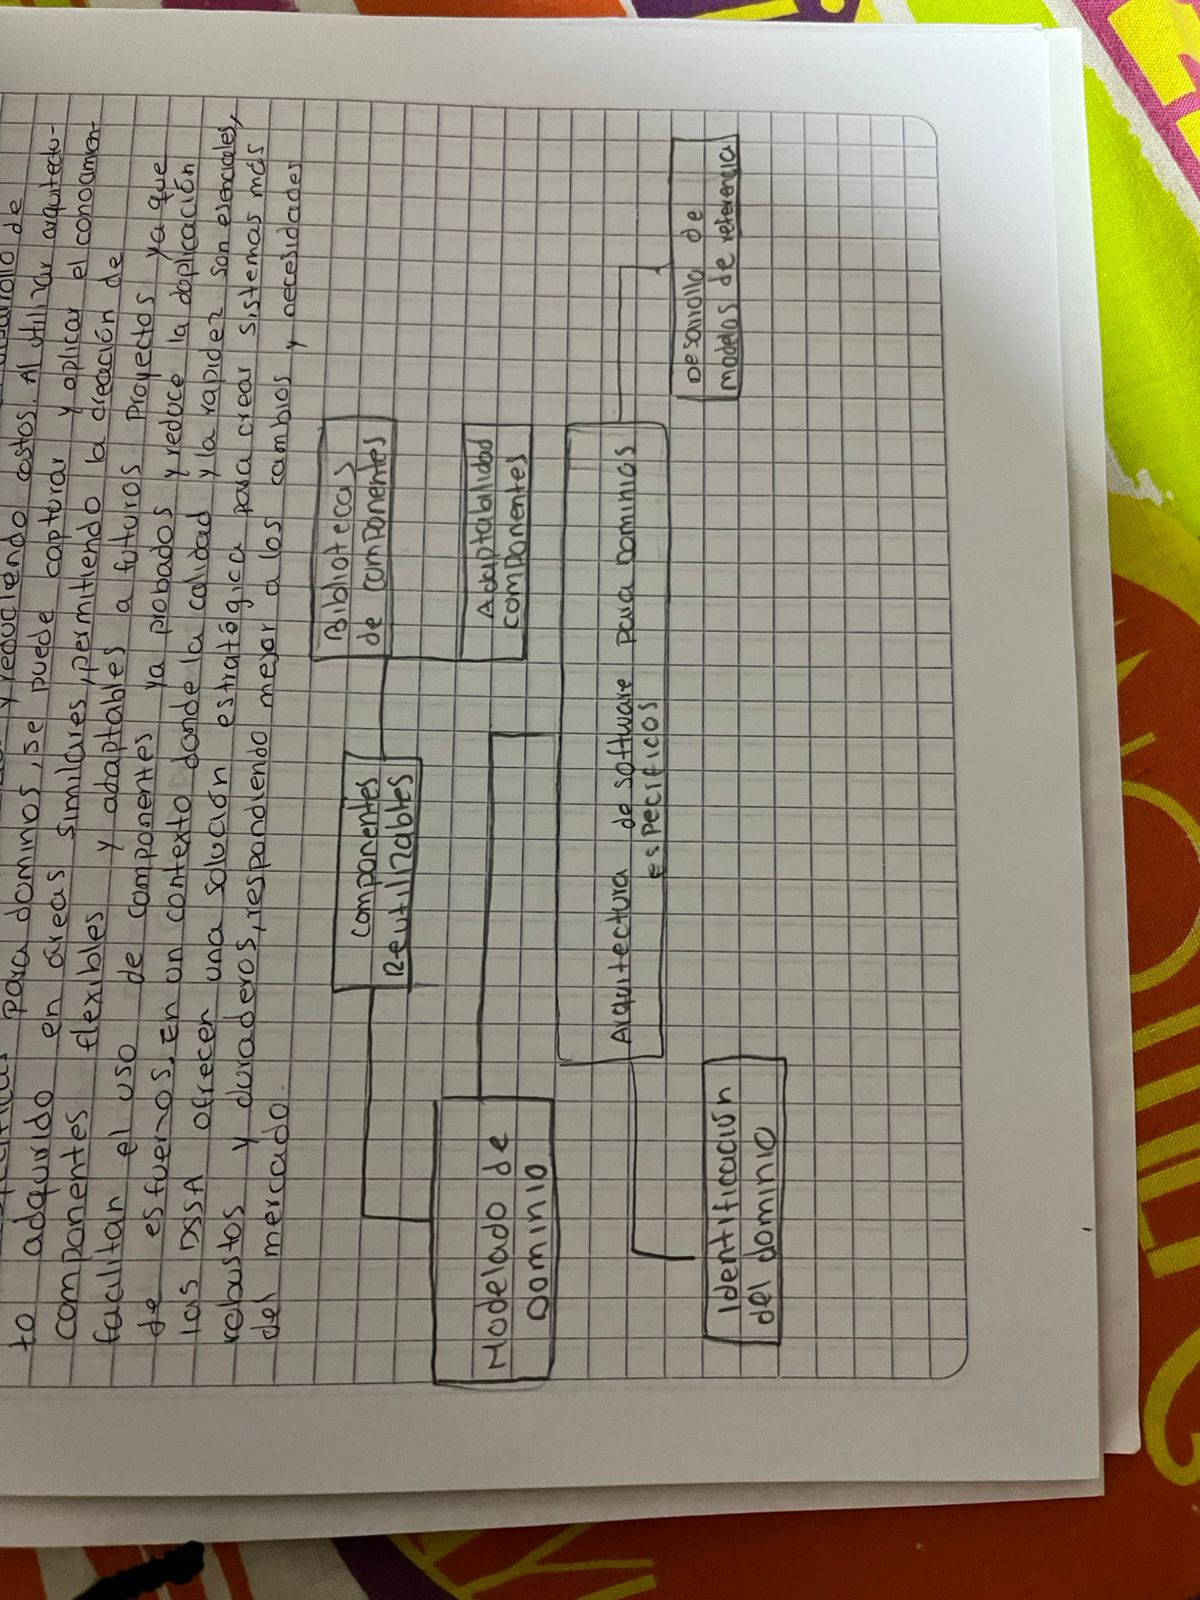 y reduciendo costos. Al utilizar arquitectu-
para dominios, se puede capturar y aplicar el conocimien-
to adquirido en áreas similares, permitiendo la creación de
componentes flexibles y adaptables a futuros Proyectos ya que
facilitan el uso de componentes ya probados y reduce la duplicación
de esfuerzos, En un contexto donde la calidad y la rapidez son esenciales,
las DSSA ofrecen una solución estratégica para crear sistemas más
robustos y duraderos, respondiendo mejor a los cambios y necesidades
del mercado.
Bibliotecas
de componentes
componentes
Reutilizables
Adaptabilidad
componentes
Modelado de
Dominio
Arquitectura de software para dominios
especificos
Desarrollo de
modelos de referencia
Identificación
del dominio